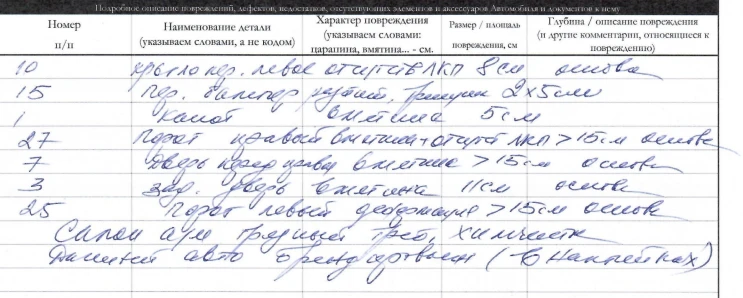 Подробное описание повреждений, дефектов, недостатков, отсутствующих элементов и аксессуаров Автомобиля и документов к нему
Номер п/п Наименование детали (указываем словами, а не кодом) Характер повреждения (указываем словами: царапина, вмятина... - см. Размер / площадь повреждения, см Глубина / описание повреждения (и другие комментарии, относящиеся к повреждению)
10 крыло пер. левое отсутств ЛКП 8 см основа
15 Пер. бампер 2х5см
1 Капот вмятина 5 см
27 Порог правый вмятина + отсутст ЛКП >15 см основа
7 Дверь перед права вмятина >15 см основа
3 зад. дверь вмятина 11 см основа
25 Порог левый деформация >15 см основа
Салон а/м грязный треб. химчистк
Данный авто брендирован (в наклейках)